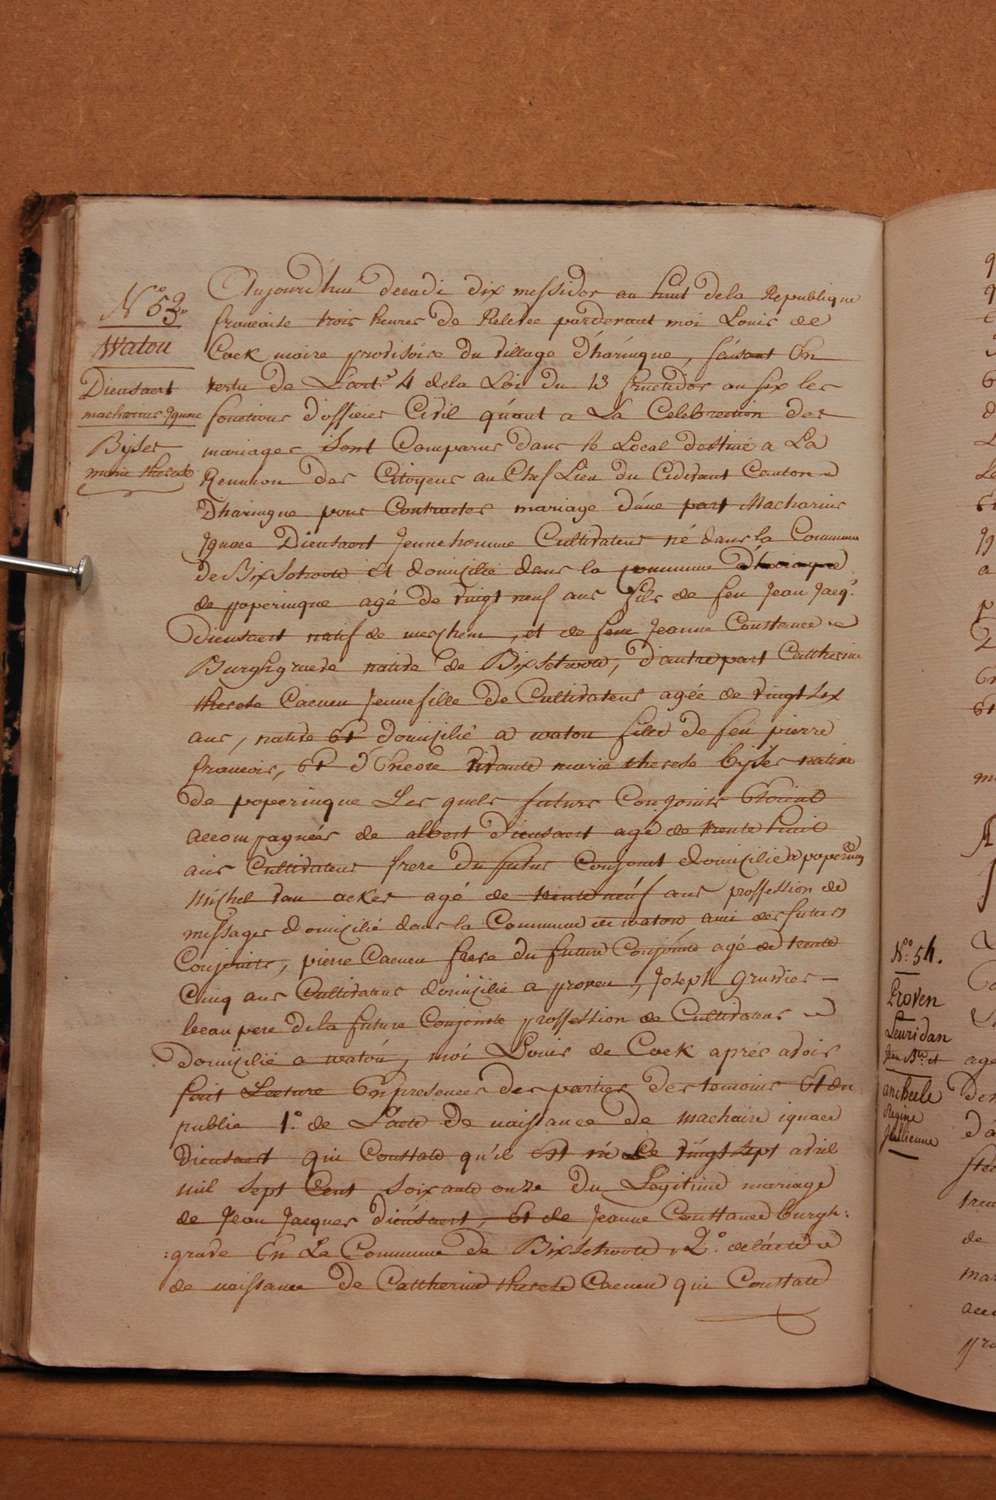 N.° 53
Watou
Dieusaert
macharius Ignace
Byser
marie therese
Aujourd'hui decadi dix messidor an huit dela Republique
francaise trois heures de Relevée pardevant moi Louis de
Cock maire provisoire du village d'haringue, faisant En
vertu de L'art.e 4 dela Loi du 13 fructidor an six les
fonctions d'officier Civil quant a La Celebration des
mariages sont Comparus dans le Local destiné a La
Reunion des Citoyens au Chef Lieu du Cidevant Canton
Dharingue pour Contracter mariage d'une part Macharius
Ignace Dieusaert Jeune homme Cultivateur né dans la Commune
de Bixschoote et domicilié dans la commune
de poperingue agé de vingt neuf ans fils de feu Jean Jacq.s
Dieusaert natif de merghem, et de feue Jeanne Constance
Burghgraeve native de Bixschoote, d'autre part Catherine
therese Caenen Jeune fille de Cultivateur agée de vingt six
ans, native Et domicilié a watou fille de feu pierre
francois, Et d'Encore vivante marie therese byser native
de poperingue Les quels futurs Conjoints Etoient
accompagnés de albert Dieusaert agé de trente huit
ans Cultivateur frere du futur Conjoint domicilié a popering
Michel van acker agé de trente neuf ans proffession de
messager domicilié dans la Commune de watou ami des futurs
Conjoints, pierre Caenen frere du future Conjointe agé de trente
Cinq ans Cultivateur domicilié a proven, Joseph Gruwier
beau pere dela future Conjointe proffession de Cultivateur
domicilié a watou, moi Louis de Cock aprés avoir
fait Lecture En presence des parties des temoins Et du
publie 1.° de L'acte de naissance de machaire ignace
Dieusaert qui Constate qu'il est né Le vingt sept avril
mil sept Cent soixante onze du Legitime mariage
de Jean Jacques Dieusaert, Et de Jeanne Constance burgh:
:grave En La Commune de Bixschoote, 2.° de l'acte
de naissance de Catherine therese Caenen qui Constate
N.° 54.
Proven
Leuridan
Jean Bte. et
ancheele
Regine
Jullienne